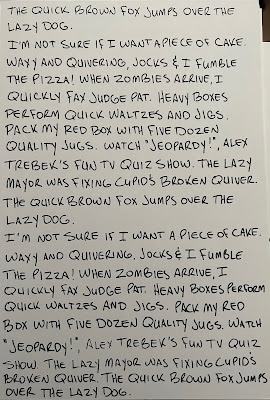 THE QUICK BROWN FOX JUMPS OVER THE
LAZY DOG.
I'M NOT SURE IF I WANT A PIECE OF CAKE.
WAXY AND QUIVERING, JOCKS & I FUMBLE
THE PIZZA! WHEN ZOMBIES ARRIVE, I
QUICKLY FAX JUDGE PAT. HEAVY BOXES
PERFORM QUICK WALTZES AND JIGS.
PACK MY RED BOX WITH FIVE DOZEN
QUALITY JUGS. WATCH "JEOPARDY!", ALEX
TREBEK'S FUN TV QUIZ SHOW. THE LAZY
MAYOR WAS FIXING CUPID'S BROKEN QUIVER.
THE QUICK BROWN FOX JUMPS OVER THE
LAZY DOG.
I'M NOT SURE IF I WANT A PIECE OF CAKE.
WAXY AND QUIVERING, JOCKS & I FUMBLE
THE PIZZA! WHEN ZOMBIES ARRIVE, I
QUICKLY FAX JUDGE PAT. HEAVY BOXES PERFORM
QUICK WALTZES AND JIGS. PACK MY RED
BOX WITH FIVE DOZEN QUALITY JUGS. WATCH
"JEOPARDY!", ALEX TREBEK'S FUN TV QUIZ
SHOW. THE LAZY MAYOR WAS FIXING CUPID'S
BROKEN QUIVER. THE QUICK BROWN FOX JUMPS
OVER THE LAZY DOG.